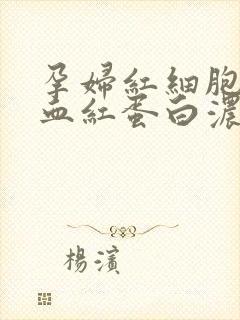 孕婦紅細胞
血紅蛋白濃
楊濱